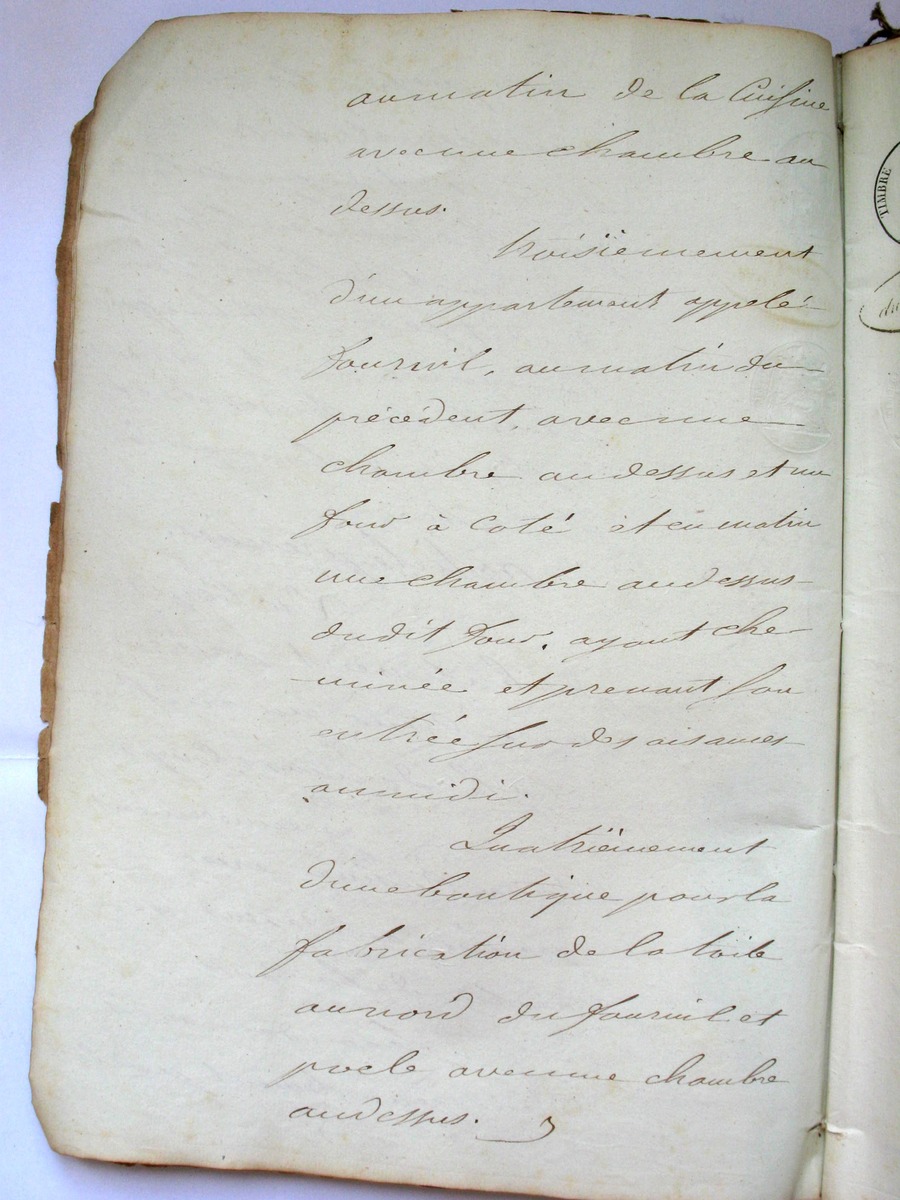 au matin de la Cuisine
avec une chambre au
dessus.
troisïemement
d'un appartement appelé
fournil, au matin du
précédent, avec une
chambre au dessus et un
four à coté et en matin
une chambre au dessus
dudit four, ayant che-
-minée et prenant son
entrée sur des aisances
au midi.
Quatriëmement
d'une boutique pour la
fabrication de la toile
au nord du fournil et
poele avec une chambre
au dessus.
TIMBRE
du